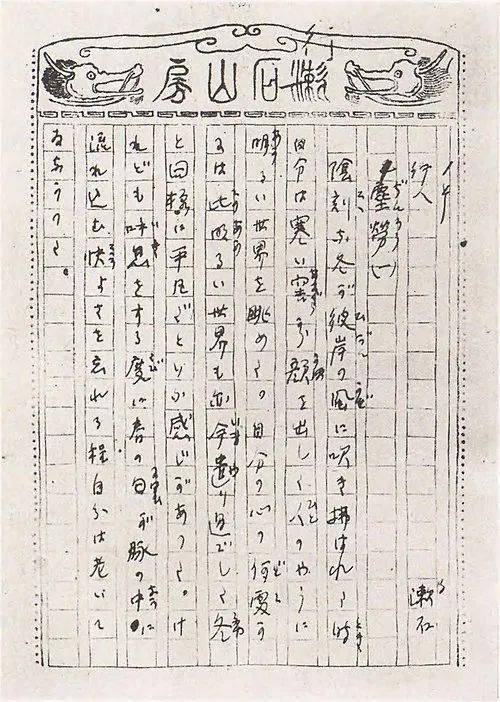 行
漱石山房
行人 漱石
塵勞(一)
陰刻な冬が彼岸の風に吹き拂はれた時
自分は寒い窖から顔を出した人のやうに
明るい世界を眺めた。自分の心の何處か
には此明るい世界も亦今遣り過ごした冬
と同様に平凡だといふ感じがあつた。け
れども呼息をする度に春の匂が脈の中に
流れ込む快よさを忘れる程自分は老いて
ゐなかつた。